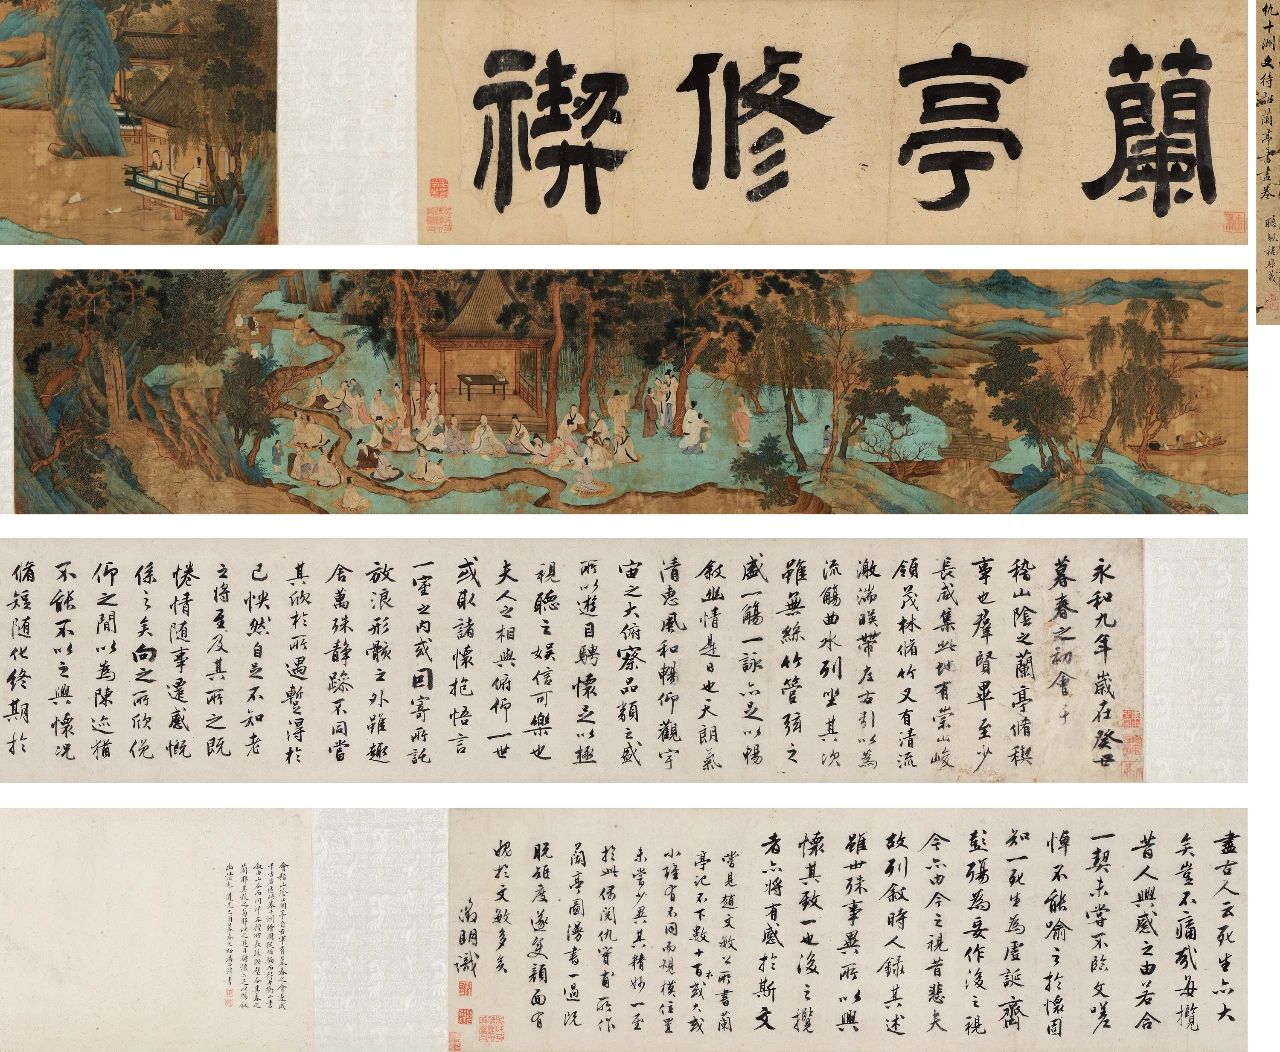 仇十洲文待詔蘭亭書畫卷
蘭亭修禊
永和九年歲在癸丑
暮春之初會于
稽山陰之蘭亭脩稧
事也羣賢畢至少
長咸集此地有崇山峻
領茂林脩竹又有清流
激湍暎帶左右引以為
流觴曲水列坐其次
雖無絲竹管弦之
盛一觴一詠亦足以暢
敘幽情是日也天朗氣
清惠風和暢仰觀宇
宙之大俯察品類之盛
所以遊目騁懷足以極
視聽之娛信可樂也
夫人之相與俯仰一世
或取諸懷抱悟言
一室之內或因寄所託
放浪形骸之外雖趣
舍萬殊靜躁不同當
其欣於所遇暫得於
己怏然自足不知老
之將至及其所之既
惓情隨事遷感慨
係之矣向之所欣俛
仰之間以為陳迹猶
不能不以之興懷況
脩短隨化終期於
盡古人云死生亦大
矣豈不痛哉每攬
昔人興感之由若合
一契未嘗不臨文嗟
悼不能喻之於懷固
知一死生為虛誕齊
彭殤為妄作後之視
今亦由今之視昔悲夫
故列敘時人錄其述
雖世殊事異所以興
懷其致一也後之攬
者亦將有感於斯文
嘗見趙文敏公所書蘭
亭記不下數十百本或大或
小雖有不同而規模位置
未嘗少異其精妙一至
於此偶閱仇實甫所作
蘭亭圖漫書一過既
脫矩度遂復顏面有
媿於文敏多矣
徵明識